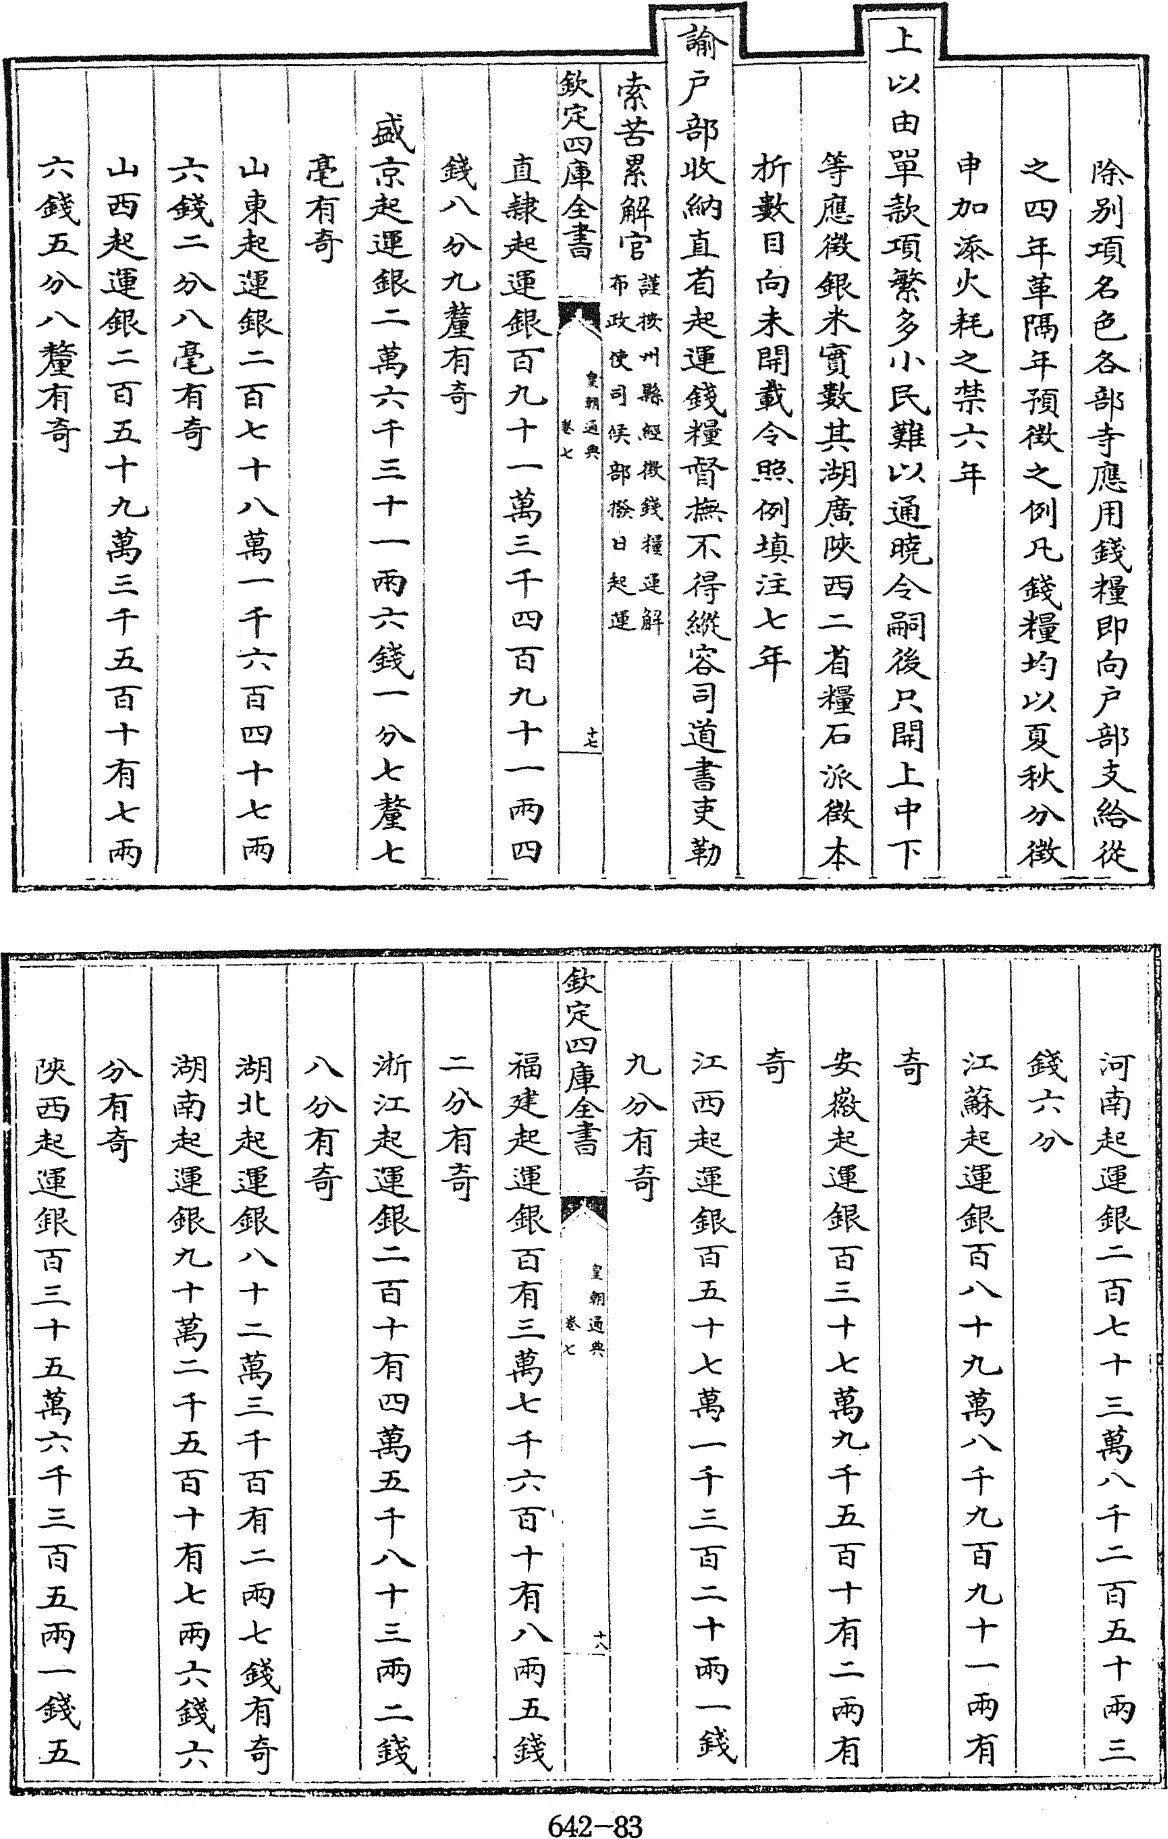 除别項名色各部寺應用錢糧即向户部支給從
之四年革隔年預徴之例凡錢糧均以夏秋分徴
申加添火耗之禁六年
上以由單款項繁多小民難以通曉令嗣後只開上中下
等應徴銀米實數其湖廣陜西二省糧石派徴本
折數目向未開載令照例填注七年
諭户部收納直省起運錢糧督撫不得縱容司道書吏勒
索苦累解官謹按州縣經徴錢糧運解
布政使司候部撥日起運
欽定四庫全書
皇朝通典
卷七
十七
直隸起運銀百九十一萬三千四百九十一兩四
錢八分九釐有奇
盛京起運銀二萬六千三十一兩六錢一分七釐七
毫有奇
山東起運銀二百七十八萬一千六百四十七兩
六錢二分八毫有奇
山西起運銀二百五十九萬三千五百十有七兩
六錢五分八釐有奇
河南起運銀二百七十三萬八千二百五十兩三
錢六分
江蘇起運銀百八十九萬八千九百九十一兩有
奇
安徽起運銀百三十七萬九千五百十有二兩有
奇
江西起運銀百五十七萬一千三百二十兩一錢
九分有奇
欽定四庫全書
皇朝通典
卷七
十八
福建起運銀百有三萬七千六百十有八兩五錢
二分有奇
浙江起運銀二百十有四萬五千八十三兩二錢
八分有奇
湖北起運銀八十二萬三千百有二兩七錢有奇
湖南起運銀九十萬二千五百十有七兩六錢六
分有奇
陜西起運銀百三十五萬六千三百五兩一錢五
642-83